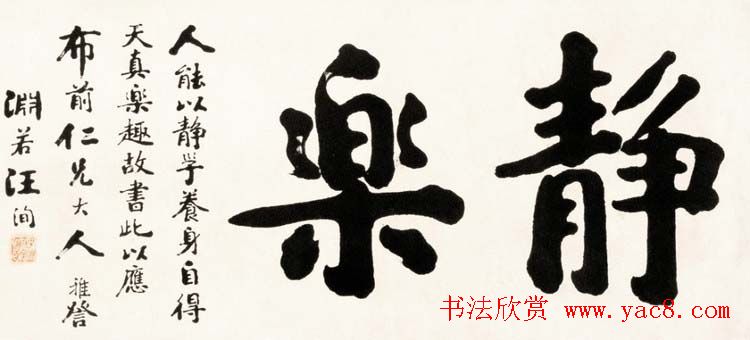 静楽
人能以静学養身自得
天真楽趣故書此以應
布前仁兄大人雅詧
淵若汪洵
书法欣赏
www.yac8.com